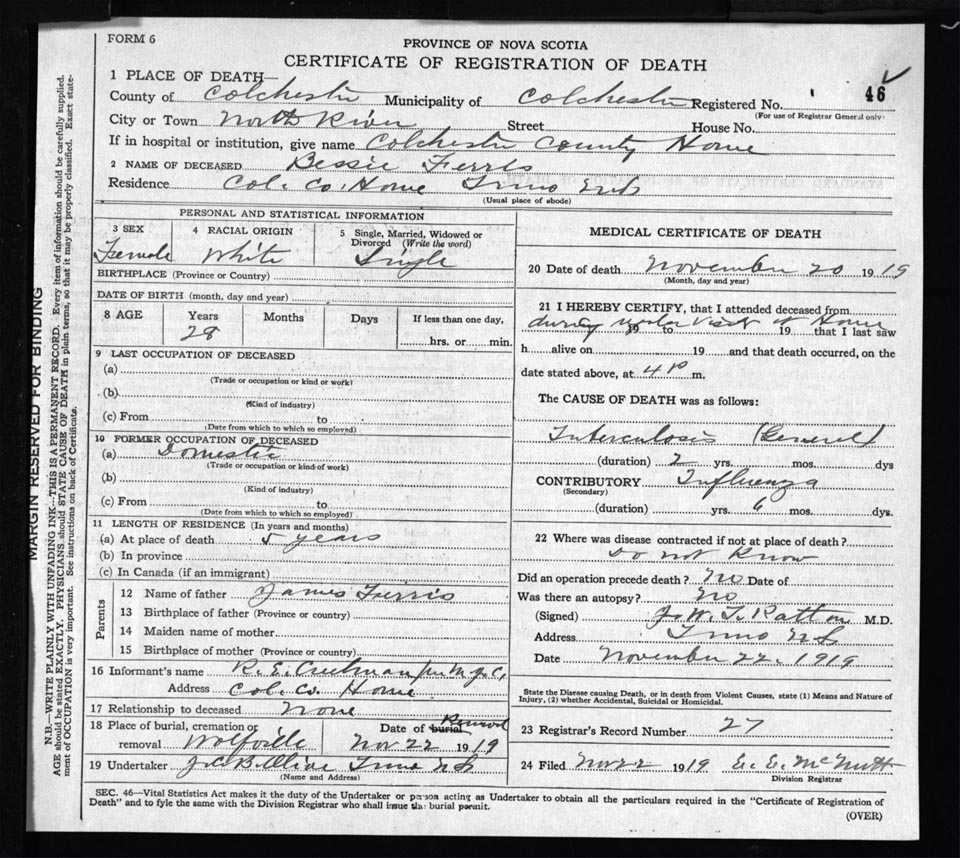 FORM 6
PROVINCE OF NOVA SCOTIA
CERTIFICATE OF REGISTRATION OF DEATH
1 PLACE OF DEATH—
County of Colchester Municipality of Colchester Registered No. 46
(For use of Registrar General only)
City or Town North River Street House No.
If in hospital or institution, give name Colchester County Home
2 NAME OF DECEASED Bessie Ferris
Residence Col. Co. Home Truro N.S.
(Usual place of abode)
PERSONAL AND STATISTICAL INFORMATION
3 SEX Female
4 RACIAL ORIGIN White
5 Single, Married, Widowed or Divorced (Write the word) Single
BIRTHPLACE (Province or Country)
DATE OF BIRTH (month, day and year)
8 AGE Years Months Days If less than one day,
28 hrs. or min.
9 LAST OCCUPATION OF DECEASED
(a)
(Trade or occupation or kind or work)
(b)
(Kind of industry)
(c) From to
(Date from which to which so employed)
10 FORMER OCCUPATION OF DECEASED
(a) Domestic
(Trade or occupation or kind of work)
(b)
(Kind of industry)
(c) From to
(Date from which to which so employed)
11 LENGTH OF RESIDENCE (In years and months)
(a) At place of death 5 years
(b) In province
(c) In Canada (if an immigrant)
Parents
12 Name of father James Ferris
13 Birthplace of father (Province or country)
14 Maiden name of mother
15 Birthplace of mother (Province or country)
16 Informant's name R. E. Creelman
Address Col. Co. Home
17 Relationship to deceased None
18 Place of burial, cremation or removal Wolfville
Date of burial Removal Nov 22 1919
19 Undertaker Truro N.S.
(Name and Address)
MEDICAL CERTIFICATE OF DEATH
20 Date of death November 20 1919
(Month, day and year)
21 I HEREBY CERTIFY, that I attended deceased from
during regular visit at Home
19 to 19 that I last saw
h alive on 19 and that death occurred, on the
date stated above, at 4 P m.
The CAUSE OF DEATH was as follows:
Tuberculosis (General)
(duration) 2 yrs. mos. dys
CONTRIBUTORY Influenza
(Secondary)
(duration) yrs. 6 mos. dys.
22 Where was disease contracted if not at place of death?
Do not know
Did an operation precede death? No Date of
Was there an autopsy? No
(Signed) J. W. T. Patton M.D.
Address Truro N.S.
Date November 22. 1919
State the Disease causing Death, or in death from Violent Causes, state (1) Means and Nature of
Injury, (2) whether Accidental, Suicidal or Homicidal.
23 Registrar's Record Number 27
24 Filed Nov 22 1919 E. E. McNutt
Division Registrar
SEC. 46—Vital Statistics Act makes it the duty of the Undertaker or person acting as Undertaker to obtain all the particulars required in the "Certificate of Registration of
Death" and to fyle the same with the Division Registrar who shall issue the burial permit.
(OVER)
MARGIN RESERVED FOR BINDING
N.B.—WRITE PLAINLY WITH UNFADING INK—THIS IS A PERMANENT RECORD. Every item of information should be carefully supplied.
AGE should be stated EXACTLY. PHYSICIANS should STATE CAUSE OF DEATH in plain terms, so that it may be properly classified. Exact state-
ment of OCCUPATION is very important. See instructions on back of Certificate.